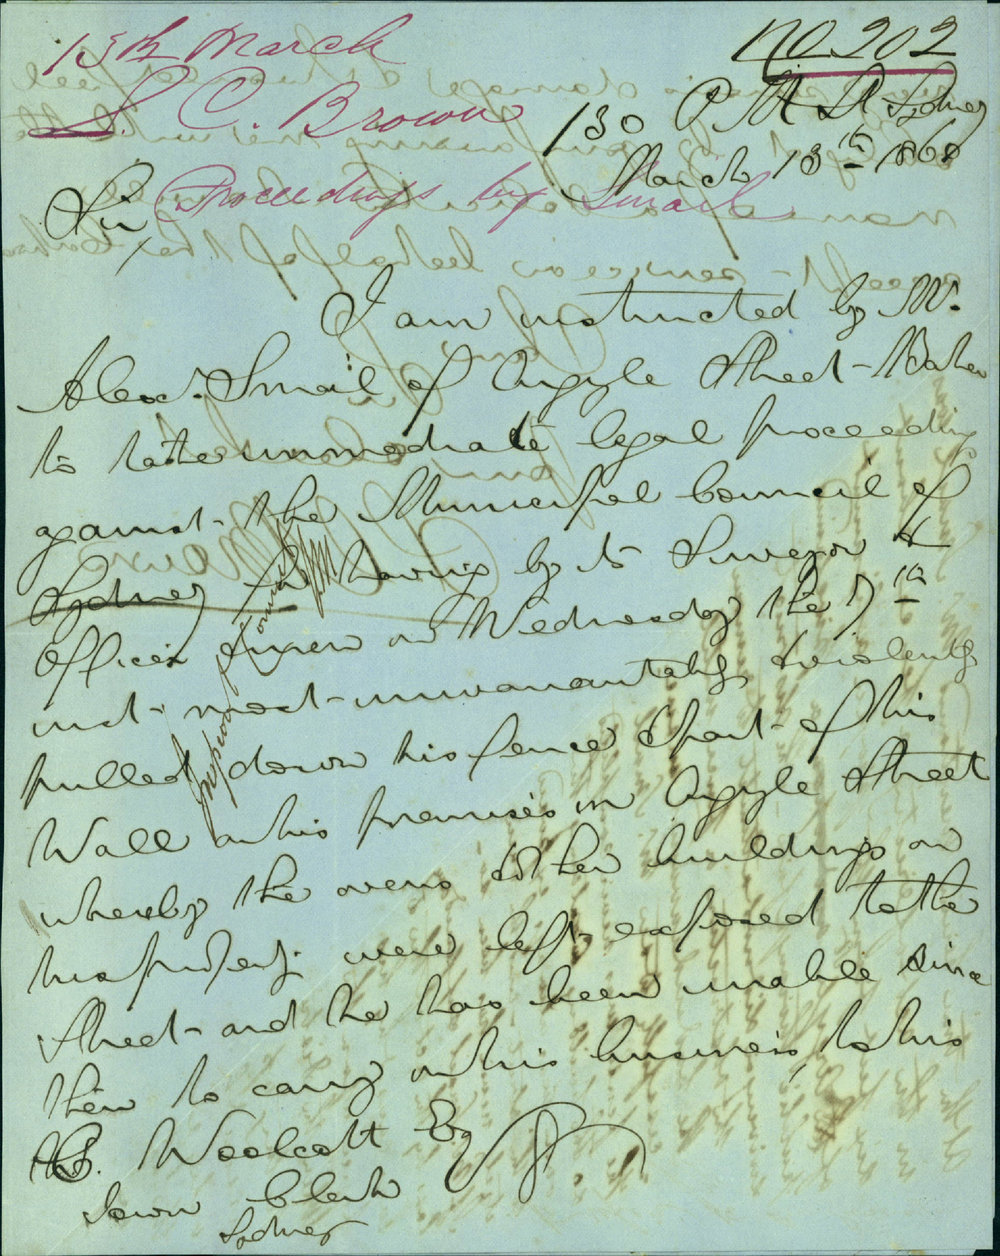 13th March
S. C. Brown
Proceedings by Smail
No 202
130 P St Sydney
March 13th 1868
Sir,
I am instructed by Mr.
Alexr. Smail of Argyle Street Baker
to take immediate legal proceedings
against the Municipal Council of
Sydney for having by its Surveyor &
Officer on Wednesday the
inst. most unwarrantably & violently
pulled down his fence & part of his
Wall on his premises in Argyle Street
whereby the ovens & other buildings on
his property were left exposed to the
Street and he has been unable since
then to carry on his business, to his
C. Woolcott Esq
Town Clerk
Sydney